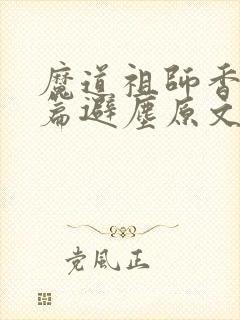 魔道祖師香
篇避塵原文
党風正